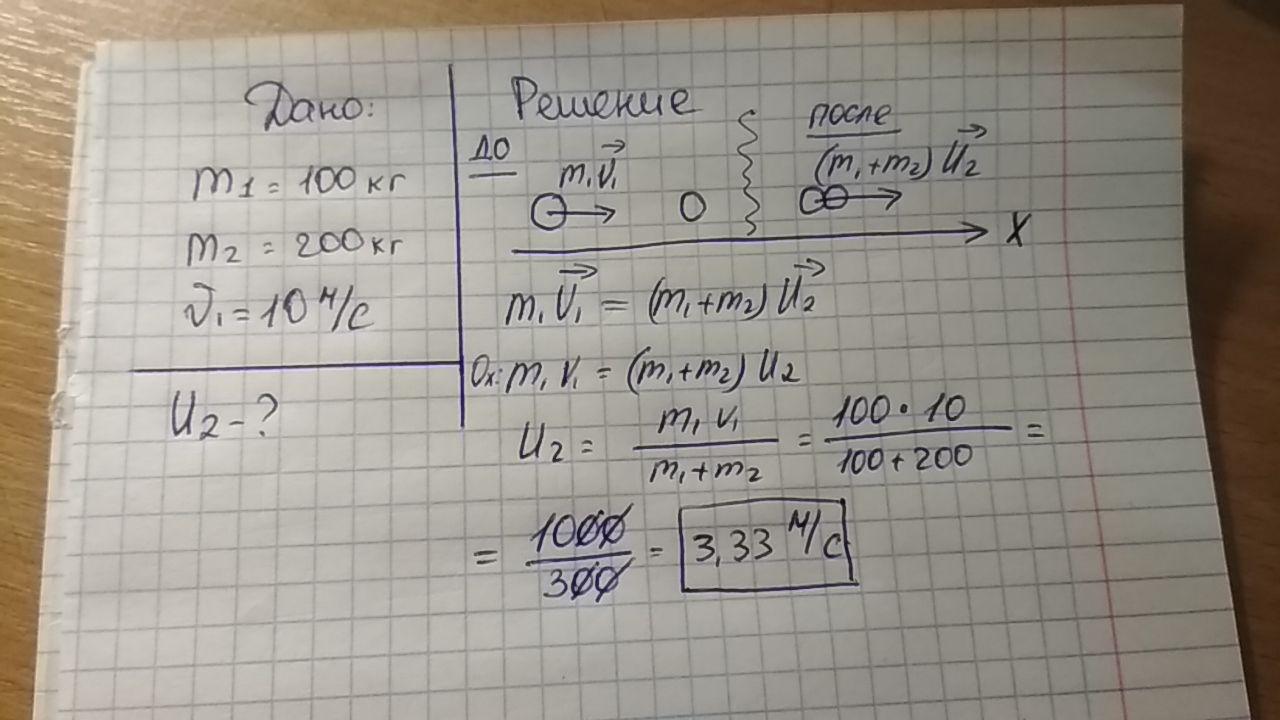 Дано:
m₁ = 100 кг
m₂ = 200 кг
v₁ = 10 м/с
U₂ - ?
Решение
ДО
m₁v⃗₁
после
(m₁+m₂)U⃗₂
X
m₁v⃗₁ = (m₁+m₂)U⃗₂
Ох: m₁v₁ = (m₁+m₂)U₂
U₂ = m₁v₁/(m₁+m₂) = 100·10/(100+200) =
= 1000/300 = 3,33 м/с